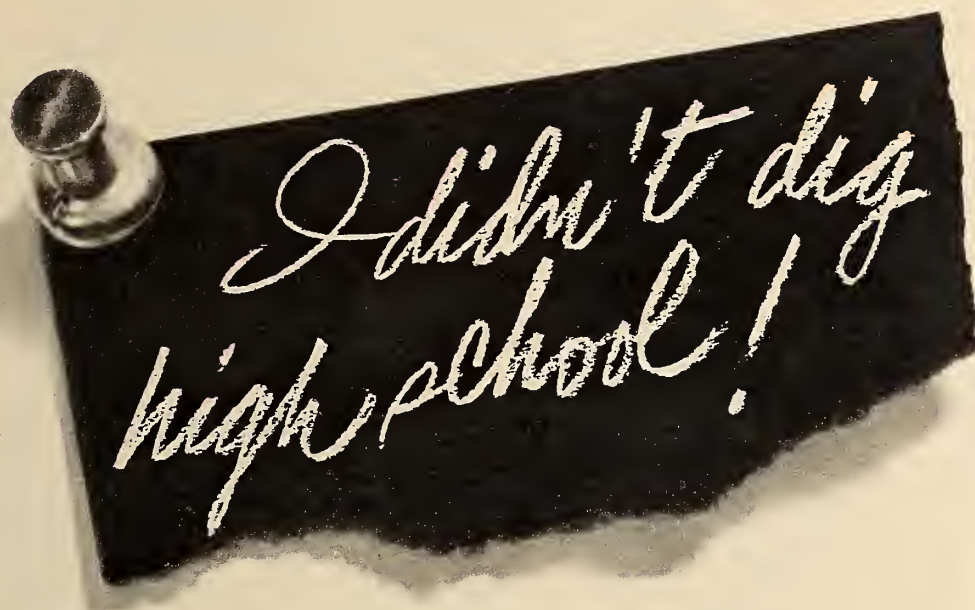 I didn't dig
high school!